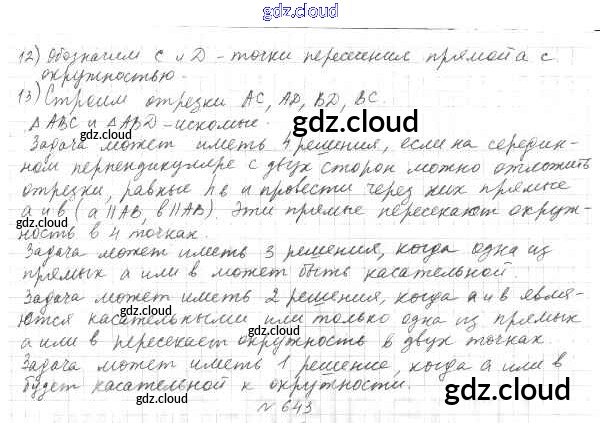 gdz.cloud
gdz.cloud
12) Обозначим C и D - точки пересечения прямой a с
окружностью.
13) Строим отрезки AC, AD, BD, BC.
△ABC и △ABD - искомые.
gdz.cloud
Задача может иметь 4 решения, если на середин-
ном перпендикуляре с двух сторон можно отложить
отрезки, равные hв и провести через них прямые
a и в (a || AB, в || AB). Эти прямые пересекают окруж-
ность в 4 точках.
gdz.cloud
gdz.cloud
gdz.cloud
Задача может иметь 3 решения, когда одна из
прямых a или в может быть касательной.
Задача может иметь 2 решения, когда a и в явля-
ются касательными или только одна из прямых
a или в пересекает окружность в двух точках.
gdz.cloud
Задача может иметь 1 решение, когда a или в
будет касательной к окружности.
gdz.cloud
gdz.cloud
№ 643